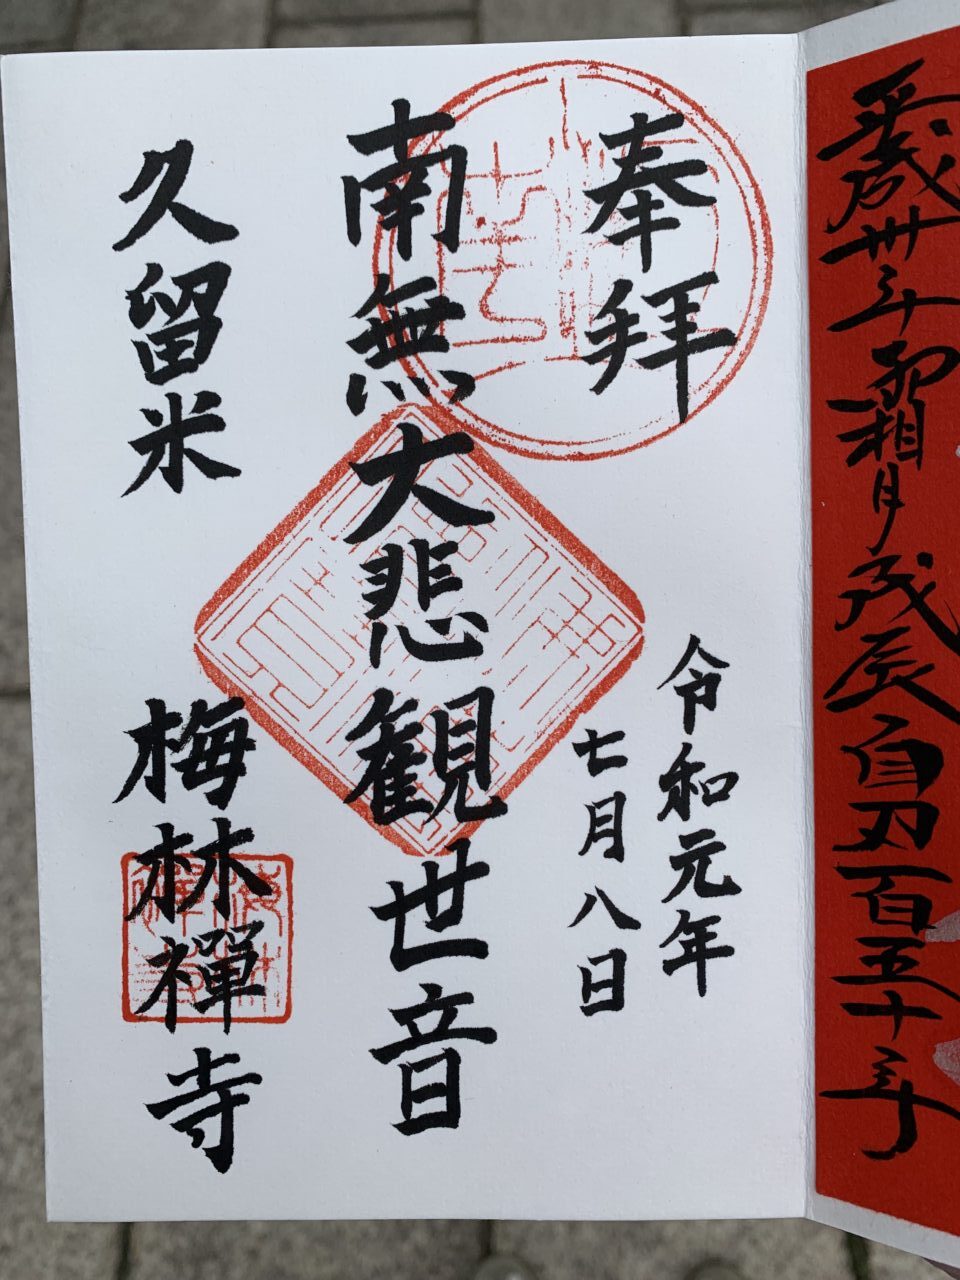 平成卅年霜月戊辰自刃百五十年
奉拝
令和元年
七月八日
南無大悲観世音
久留米
梅林禅寺